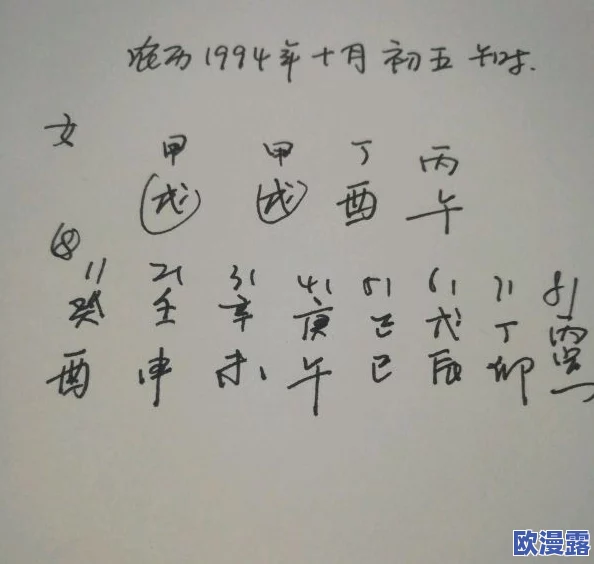 农历1994年十月初五午时.
女
甲 甲 丁 丙
戌 戌 酉 午
11 21 31 41 51 61 71 81
癸 壬 辛 庚 己 戊 丁 丙
酉 申 未 午 巳 辰 卯 寅
欧漫露